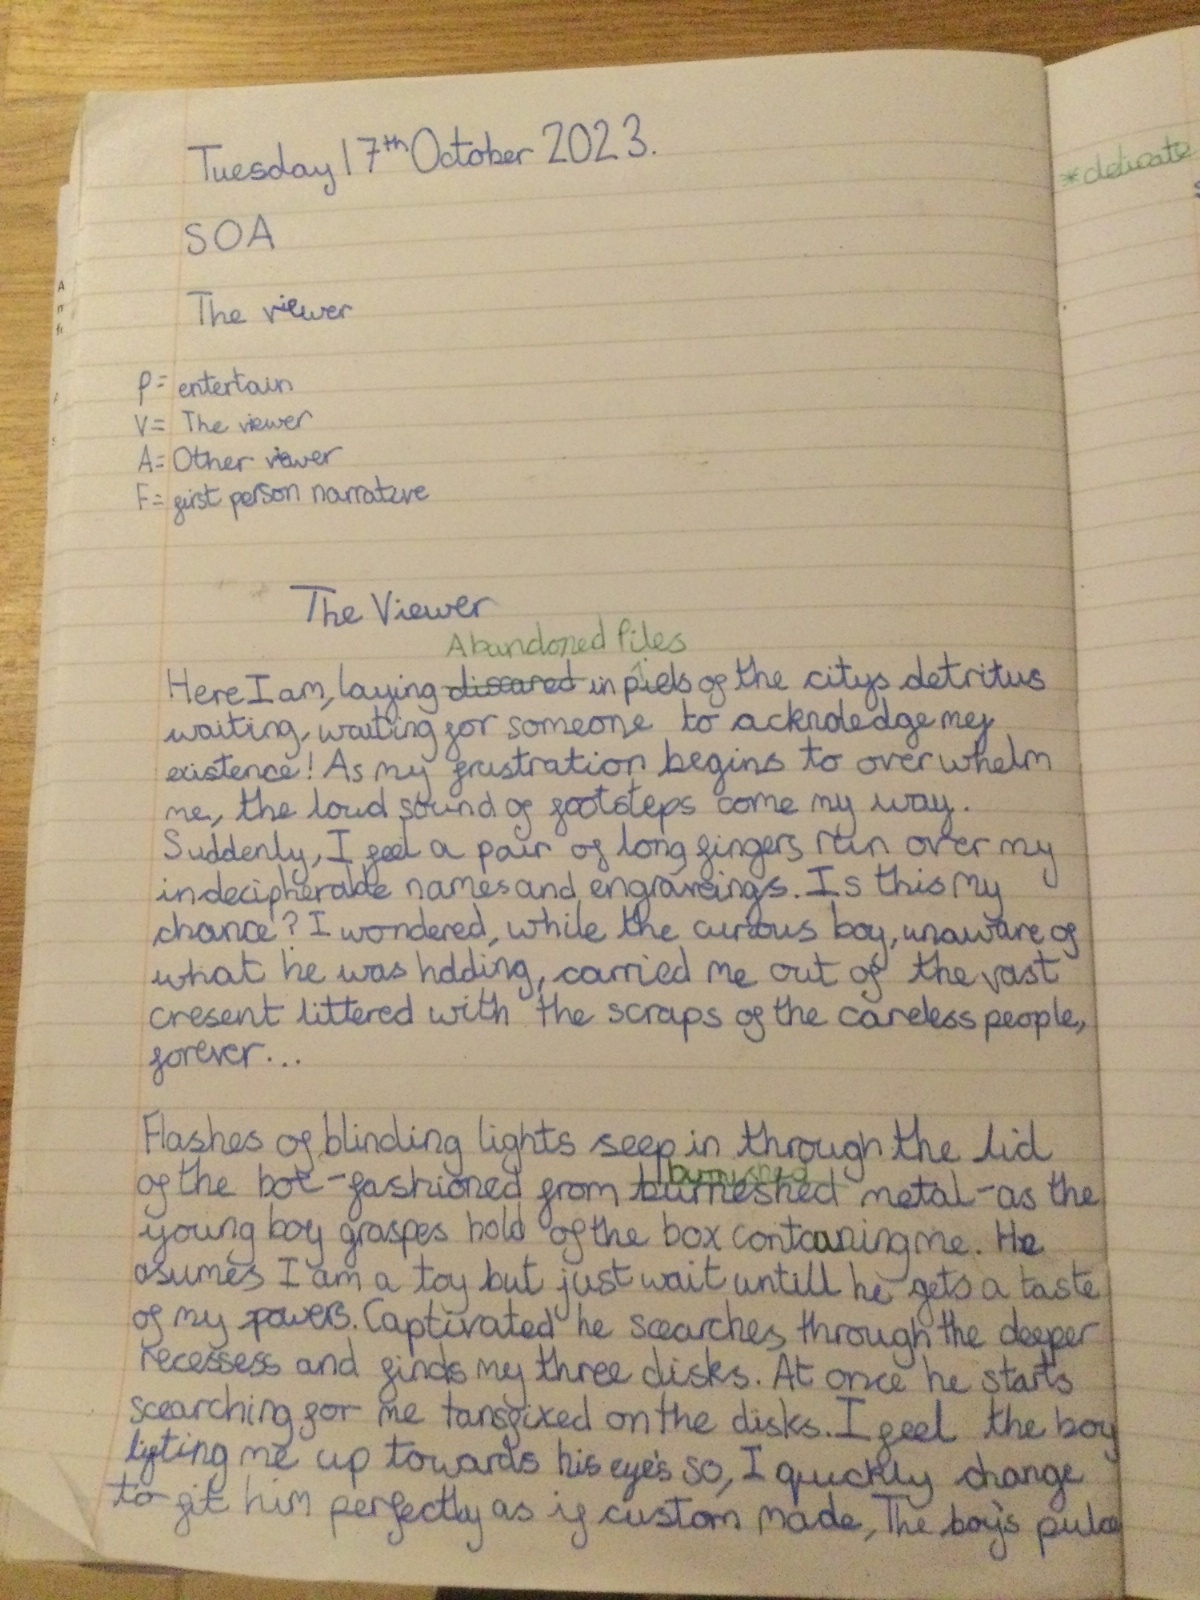 Tuesday 17th October 2023.
*delicate
SOA
The viewer
P= entertain
V= The viewer
A= Other viewer
F= first person narrative
The Viewer
Abandoned Piles
Here I am, laying discared in piels of the citys detritus
waiting, waiting for someone to acknoledge my
existence! As my frustration begins to overwhelm
me, the loud sound of footsteps come my way.
Suddenly, I feel a pair of long fingers run over my
indecipherable names and engraveings. Is this my
chance? I wondered, while the curious boy, unaware of
what he was holding, carried me out of the vast
cresent littered with the scraps of the careless people,
forever...
Flashes of blinding lights seep in through the lid
burnished
of the box-fashioned from burneshed metal-as the
young boy graspes hold of the box containing me. He
asumes I am a toy but just wait untill he gets a taste
of my powers. Captivated he scearches through the deeper
recessess and finds my three disks. At once he starts
scearching for me tansfixed on the disks. I feel the boy
lifting me up towards his eye's so, I quickly change
to fit him perfectly as if custom made, The boy's